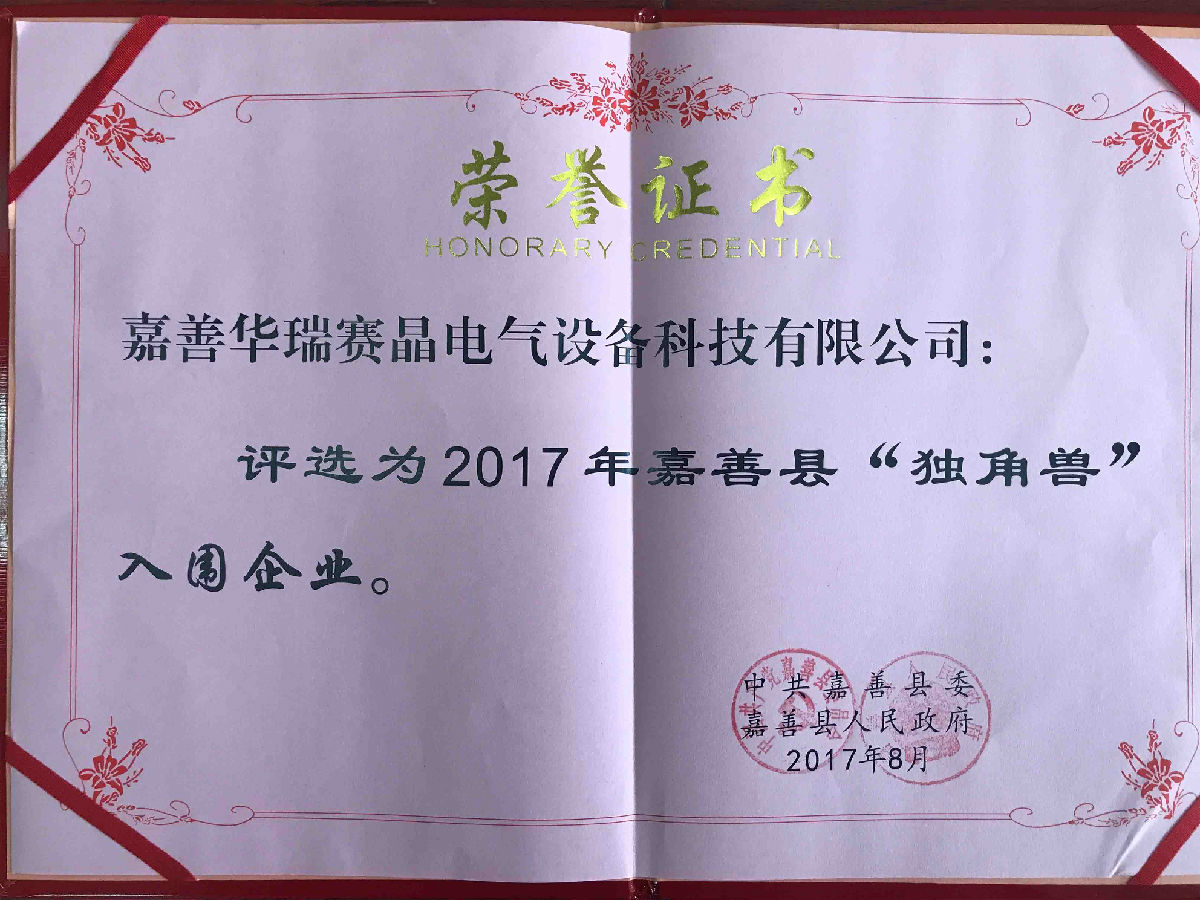 荣誉证书
HONORARY CREDENTIAL
嘉善华瑞赛晶电气设备科技有限公司：
评选为2017年嘉善县“独角兽”
入围企业。
中共嘉善县委
嘉善县人民政府
2017年8月